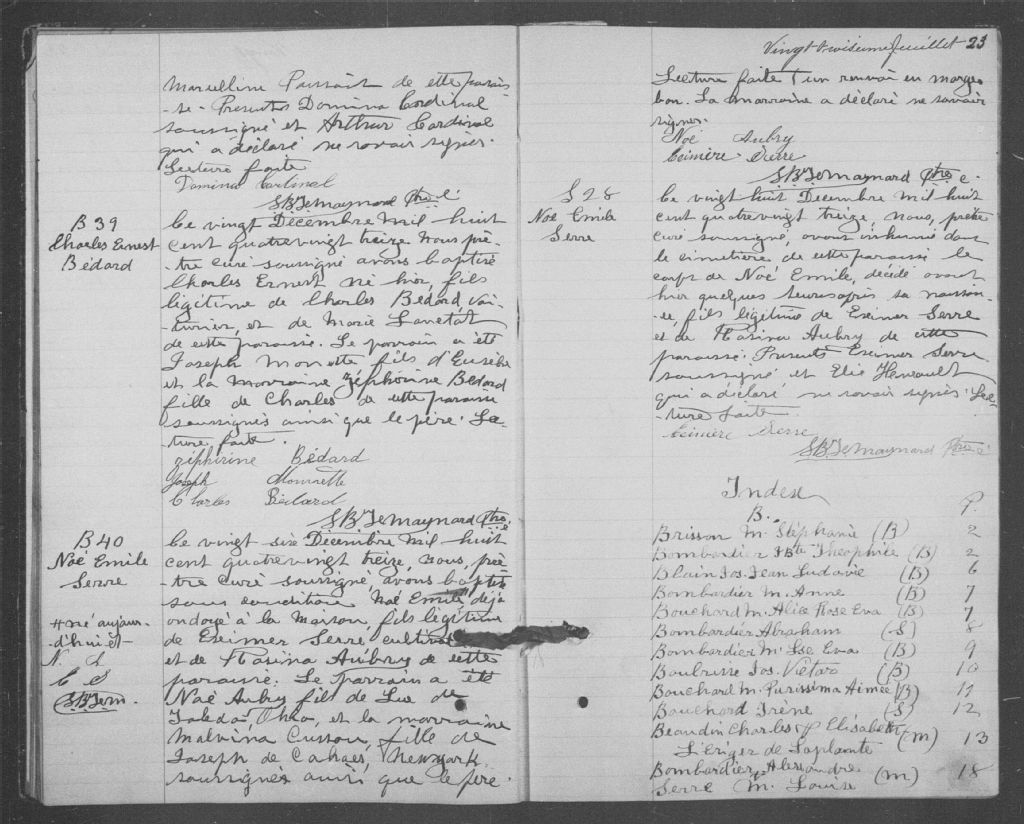 Marcelline Parssait de cette parois-
se. Presents Domina Cardinal
soussigné et Arthur Cardinal
qui a déclaré ne savoir signer.
Lecture faite
Domina Cardinal
S.B. Lemaynard Ptre c
B 39
Charles Ernest
Bédard
Ce vingt Décembre Mil huit
cent quatrevingt treize Nous prê-
tre curé soussigné avons baptisé
Charles Ernest né hier, fils
légitime de Charles Bédard, voi-
turier, et de Marie Lanctôt
de cette paroisse. Le parrain a été
Joseph Monette fils d'Eusèbe
et la marraine Zéphirine Bédard
fille de Charles de cette paroisse
soussignés ainsi que le père. Lec-
ture faite.
Ziphirine Bédard
Joseph Monette
Charles Bédard
S.B. Lemaynard Ptre c
B 40
Noé Emile
Serre
# né aujour-
d'hui et
N. A
C S
S.B. Lem.
Ce vingt six Décembre Mil huit
cent quatrevingt treize, Nous, prê-
tre curé soussigné, avons baptisé
sous condition Noé Emile, déjà
ondoyé à la Maison, fils légitime
de Exeimer Serre
et de Rosina Aubry de cette
paroisse. Le parrain a été
Noé Aubry fils de Luc de
Toledo, Ohio, et la marraine
Malvina Cusson, fille de
Joseph de Cahoes, Newyork
soussignés ainsi que le père.
Vingt troisième feuillet 23
Lecture faite 1 un renvoi en marge
bon. La marraine a déclaré ne savoir
signer.
Noé Aubry
Exeimère Serre
S.B. Lemaynard Ptre c.
S 28
Noé Emile
Serre
Ce vingt huit Décembre Mil huit
cent quatrevingt treize, Nous, prêtre
curé soussigné, avons inhumé dans
le cimetière de cette paroisse le
corps de Noé Emile, décédé avant
hier quelques heures après sa naissan-
ce, fils légitime de Exeimer Serre
et de Rosina Aubry de cette
paroisse. Présents Exeimer Serre
soussigné et Elie Heneault
qui a déclaré ne savoir signer. Lec-
ture faite
Exeimère Serre
S.B. Lemaynard Ptre c
Index
B. P.
Brisson M. Stéphanie (B) 2
Bombardier Jbte Théophile (B) 2
Blain Jos. Jean Ludovic (B) 6
Bombardier M. Anne (B) 7
Bouchard M. Alice Rose Eva (B) 7
Bombardier Abraham (S) 8
Bombardier M. Lse Eva (B) 9
Boubrisse Jos. Victor (B) 10
Bouchard M. Purissima Aimée (B) 11
Bouchard Irène (S) 12
Beaudin Charles & Elisabeth
L'Ériger de Laplante (M) 13
Bombardier, Alexandre
Serre M. Louise (M) 18